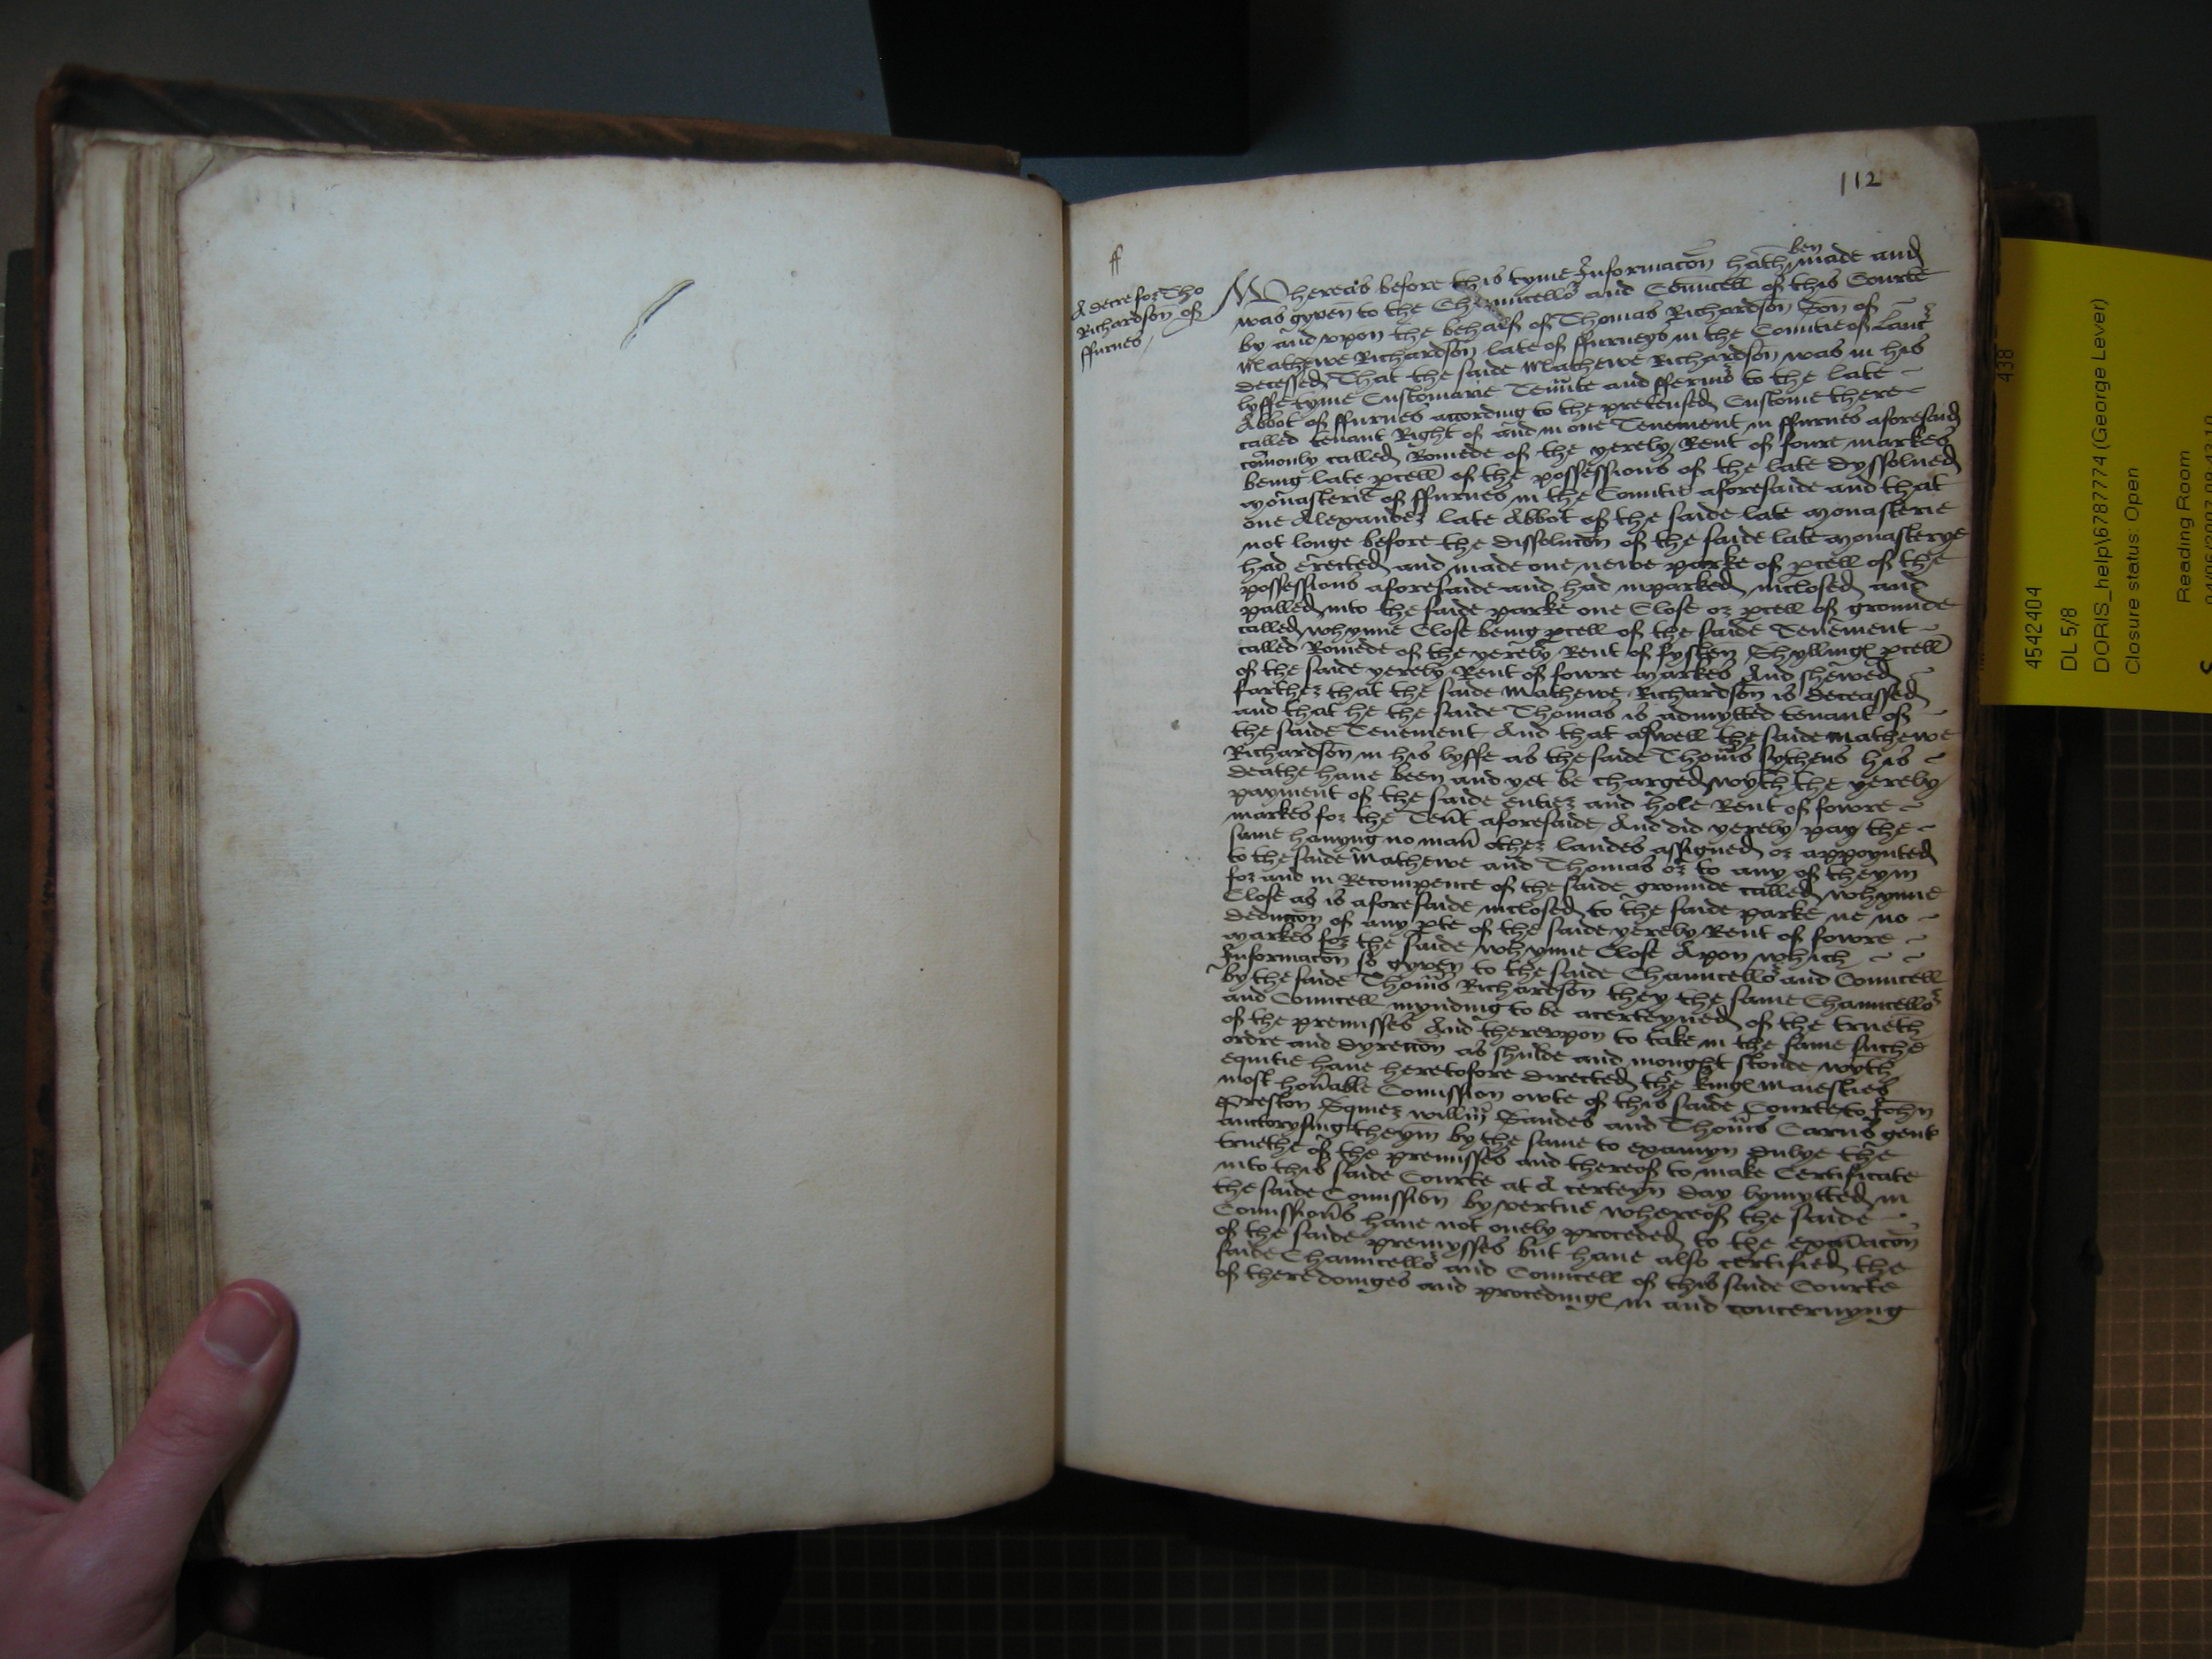 112
ff
A decre for Tho
Richardson of
ffurnes
ben
Whereas before this tyme Informacōn hath made and
was gyven to the Chauncello͛ and Councell of this Courte
by and vpon the behalf of Thomas Richardson Son of
Mathewe Richardson late of ffurneys in the Countie of Lanc͛
decessed That the saide Mathewe Richardson was in his
lyffe tyme Customarie Ten̄nte and fferm͛ to the late
Abbot of ffurnes according to the pretensed Custome there
called tenant Right of and in one Tenement in ffurnes aforesaid
com̄only called Romede of the yerely Rent of foure markes
being late pcell of the possessions of the late dyssolued
monasterie of ffurnes in the Countie aforesaide and that
one Alexander late Abbot of the saide late monasterie
not longe before the dissolucōn of the saide late monasterye
had erected and made one newe parke of pcell of the
possessions aforesaide and had inparked inclosed and
palled into the saide parke one Close or pcell of grounde
called whynne Close being pcell of the saide Tenement
called Romede of the yerely Rent of fysten Shyllingꝭ pcell
of the saide yerely Rent of fowre markes And shewed
farther that the saide Mathewe Richardson is deceassed
and that he the saide Thomas is admytted tenant of
the saide Tenement And that aswell the saide Mathewe
Richardson in his lyffe as the saide Thom̄s sythens his
deathe haue been and yet be charged wyth the yerely
payment of the saide entier and hole Rent of fowre
markes for the Ten̄t aforesaide And did yerely pay the
same hauyng no man̄ other landes assigned or appoynted
to the saide Mathewe and Thomas or to any of theym
for and in Recompence of the saide grounde called whynne
Close as is aforesaide inclosed to the saide parke ne no
deduccōn of any pte of the saide yerely Rent of fowre
markes for the saide whynne Close Apon which
Informacōn so gyven to the saide Chauncello͛ and Councell
by the saide Thom̄s Richardson they the same Chauncello͛
and Councell mynding to be acerteyned of the trueth
of the premisses And therevpon to take in the same suche
ordre and dyreccōn as shulde and mought stonde wyth
equitie haue heretofore directed the kingꝭ maiesties
most hon̄able Com̄ission owte of this saide Courte to John
Preston Squier will̄m Sandes and Thom̄s Carus gent
auctorysing theym by the same to examyn dulye the
truethe of the premisses and thereof to make Certificate
into this saide Courte at A certeyn day lymytted in
the saide Com̄ission by vertue whereof the saide
Com̄ission̄s haue not onely proceded to the exam̄acōn
of the saide premysses but haue also certified the
saide Chauncello͛ and Councell of this saide Courte
of there doinges and procedingꝭ in and concernyng
438
4542404
DL 5/8
DORIS_help\6787774 (George Lever)
Closure status: Open
Reading Room